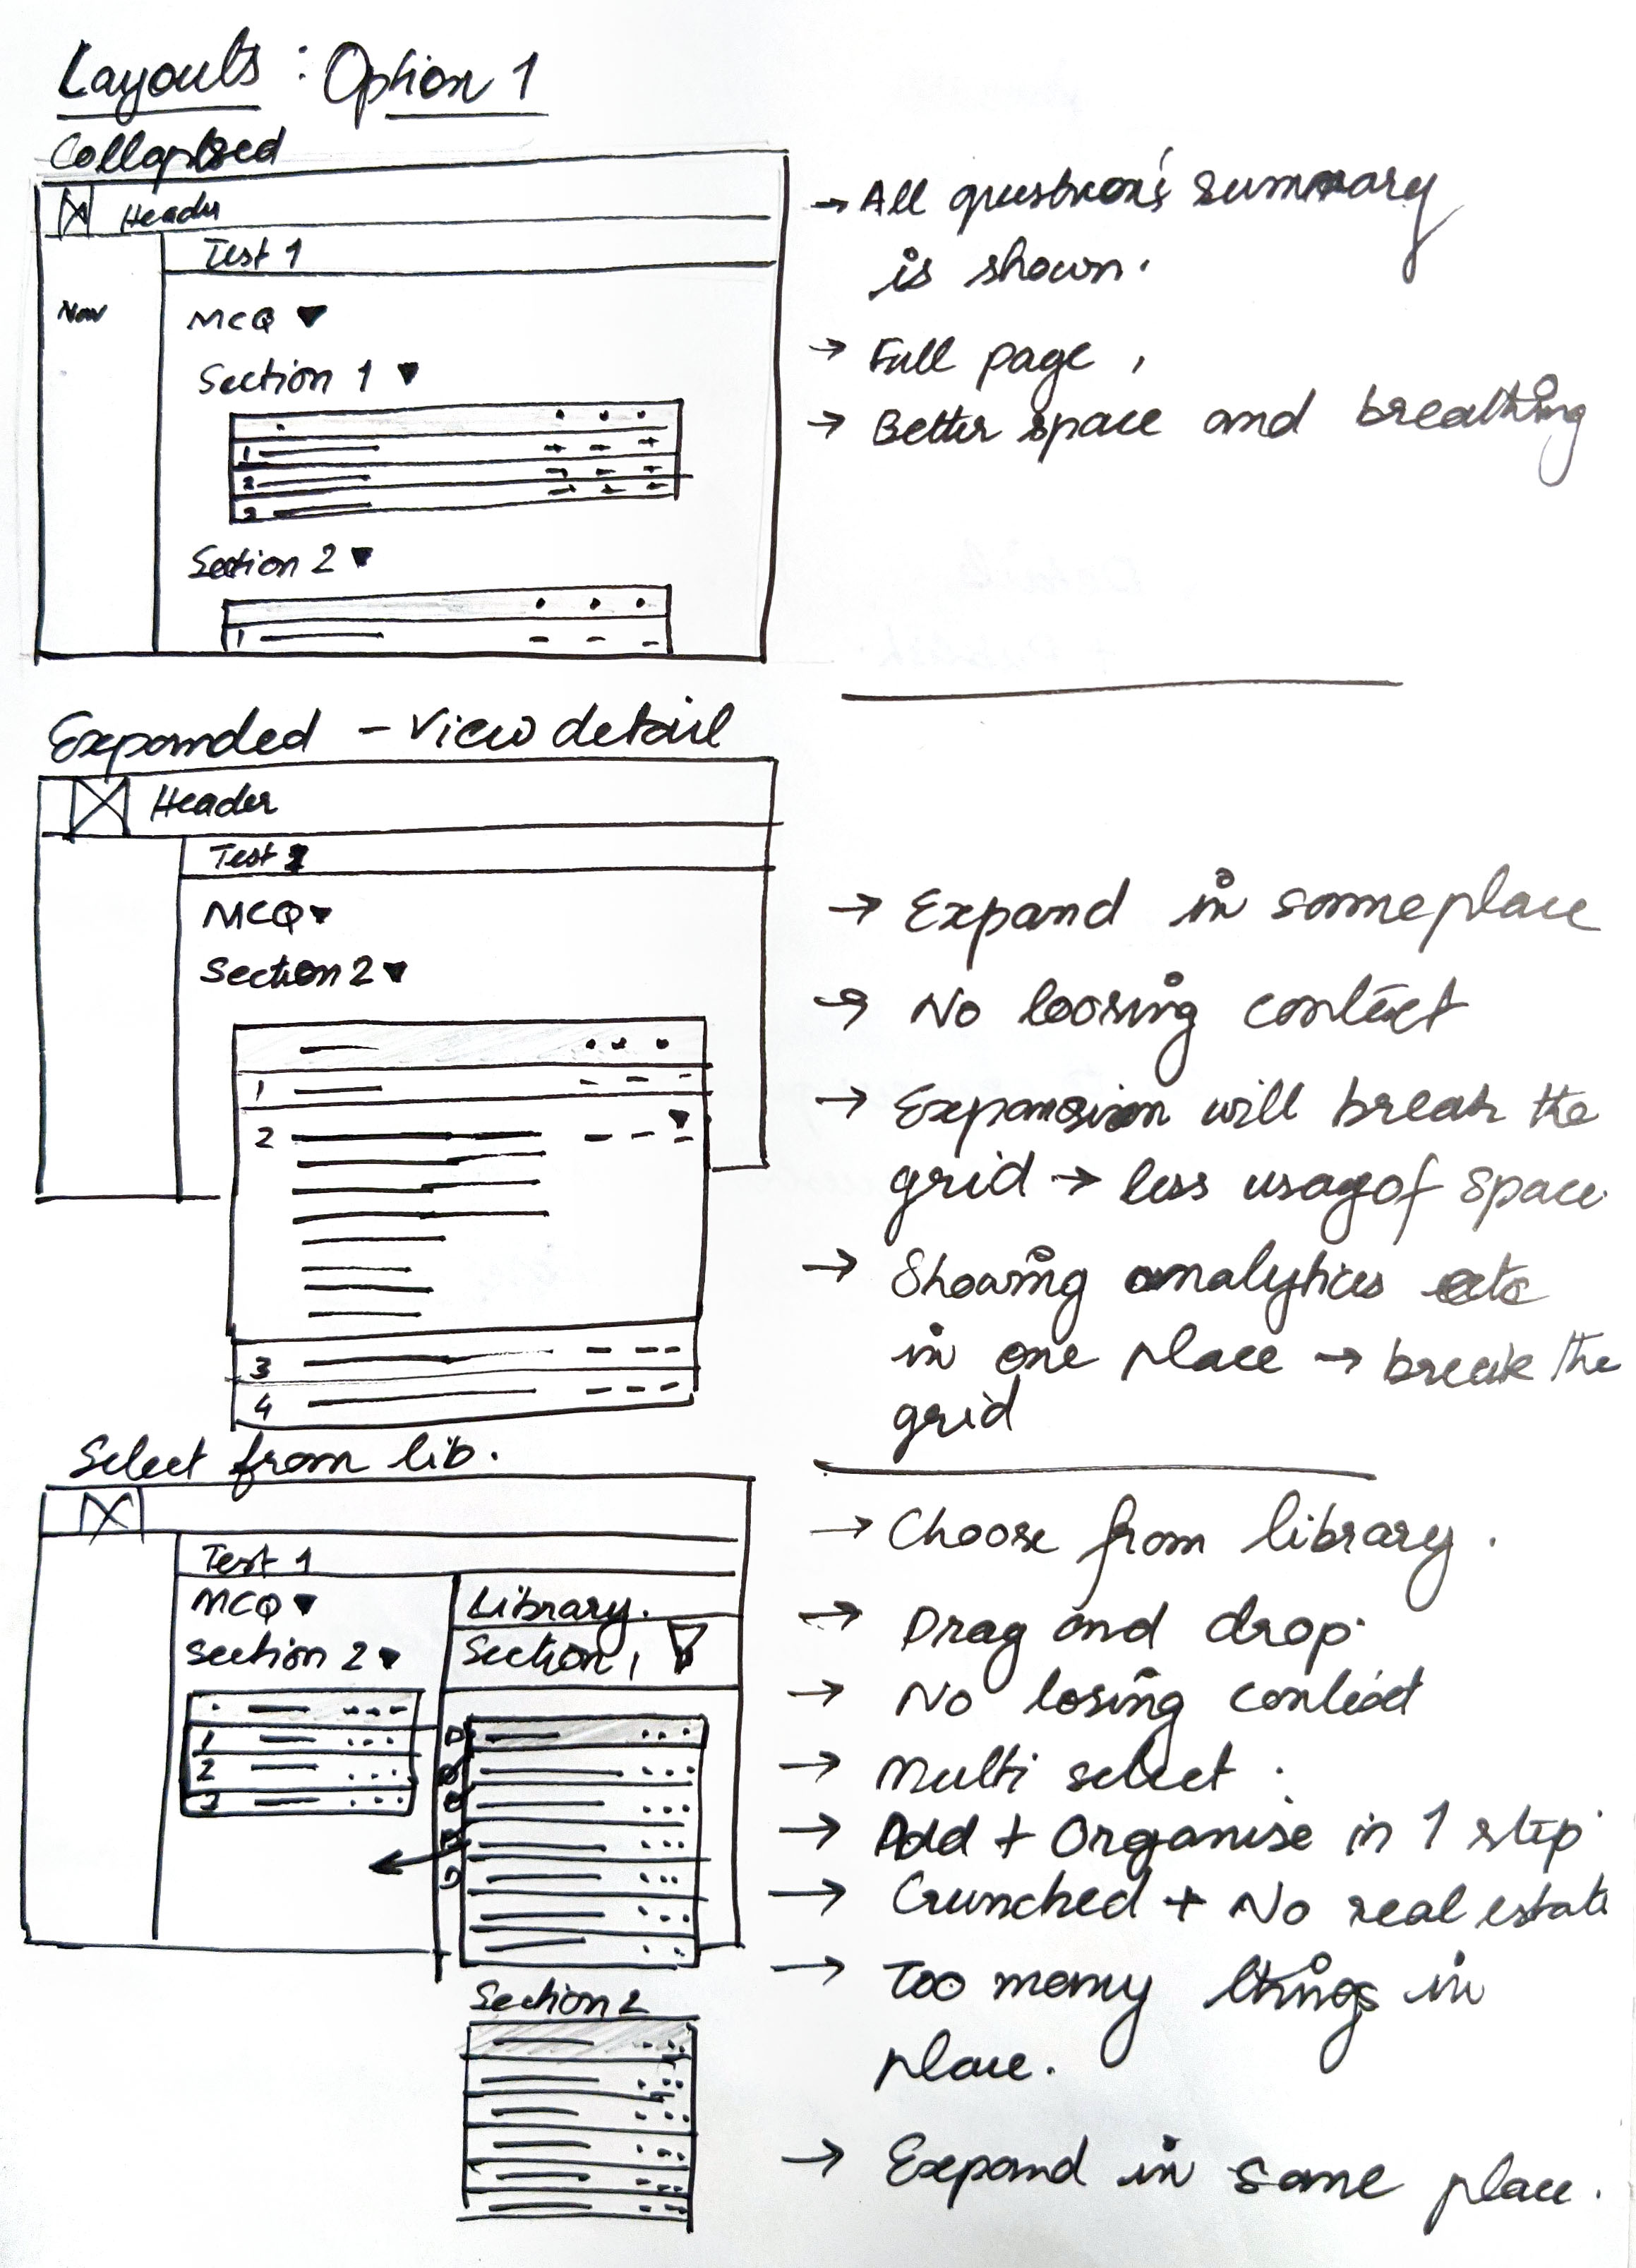 Layouts : Option 1
Collapsed
Header
Test 1
Nav
MCQ
Section 1
1
2
3
Section 2
1
→ All question's summary
is shown.
→ Full page,
→ Better space and breathing
Expanded - View detail
Header
Test 1
MCQ
Section 2
1
2
3
4
→ Expand in same place
→ No loosing context
→ Expansion will break the
grid → less usag of space
→ Showing analytics etc
in one place → break the
grid
Select from lib.
Test 1
MCQ
Section 2
1
2
3
Library.
Section 1
Section 2
→ Choose from library.
→ Drag and drop.
→ No losing context
→ Multi select.
→ Add + Organise in 1 step
→ Crunched + No real estate
→ Too many things in
place.
→ Expand in same place.